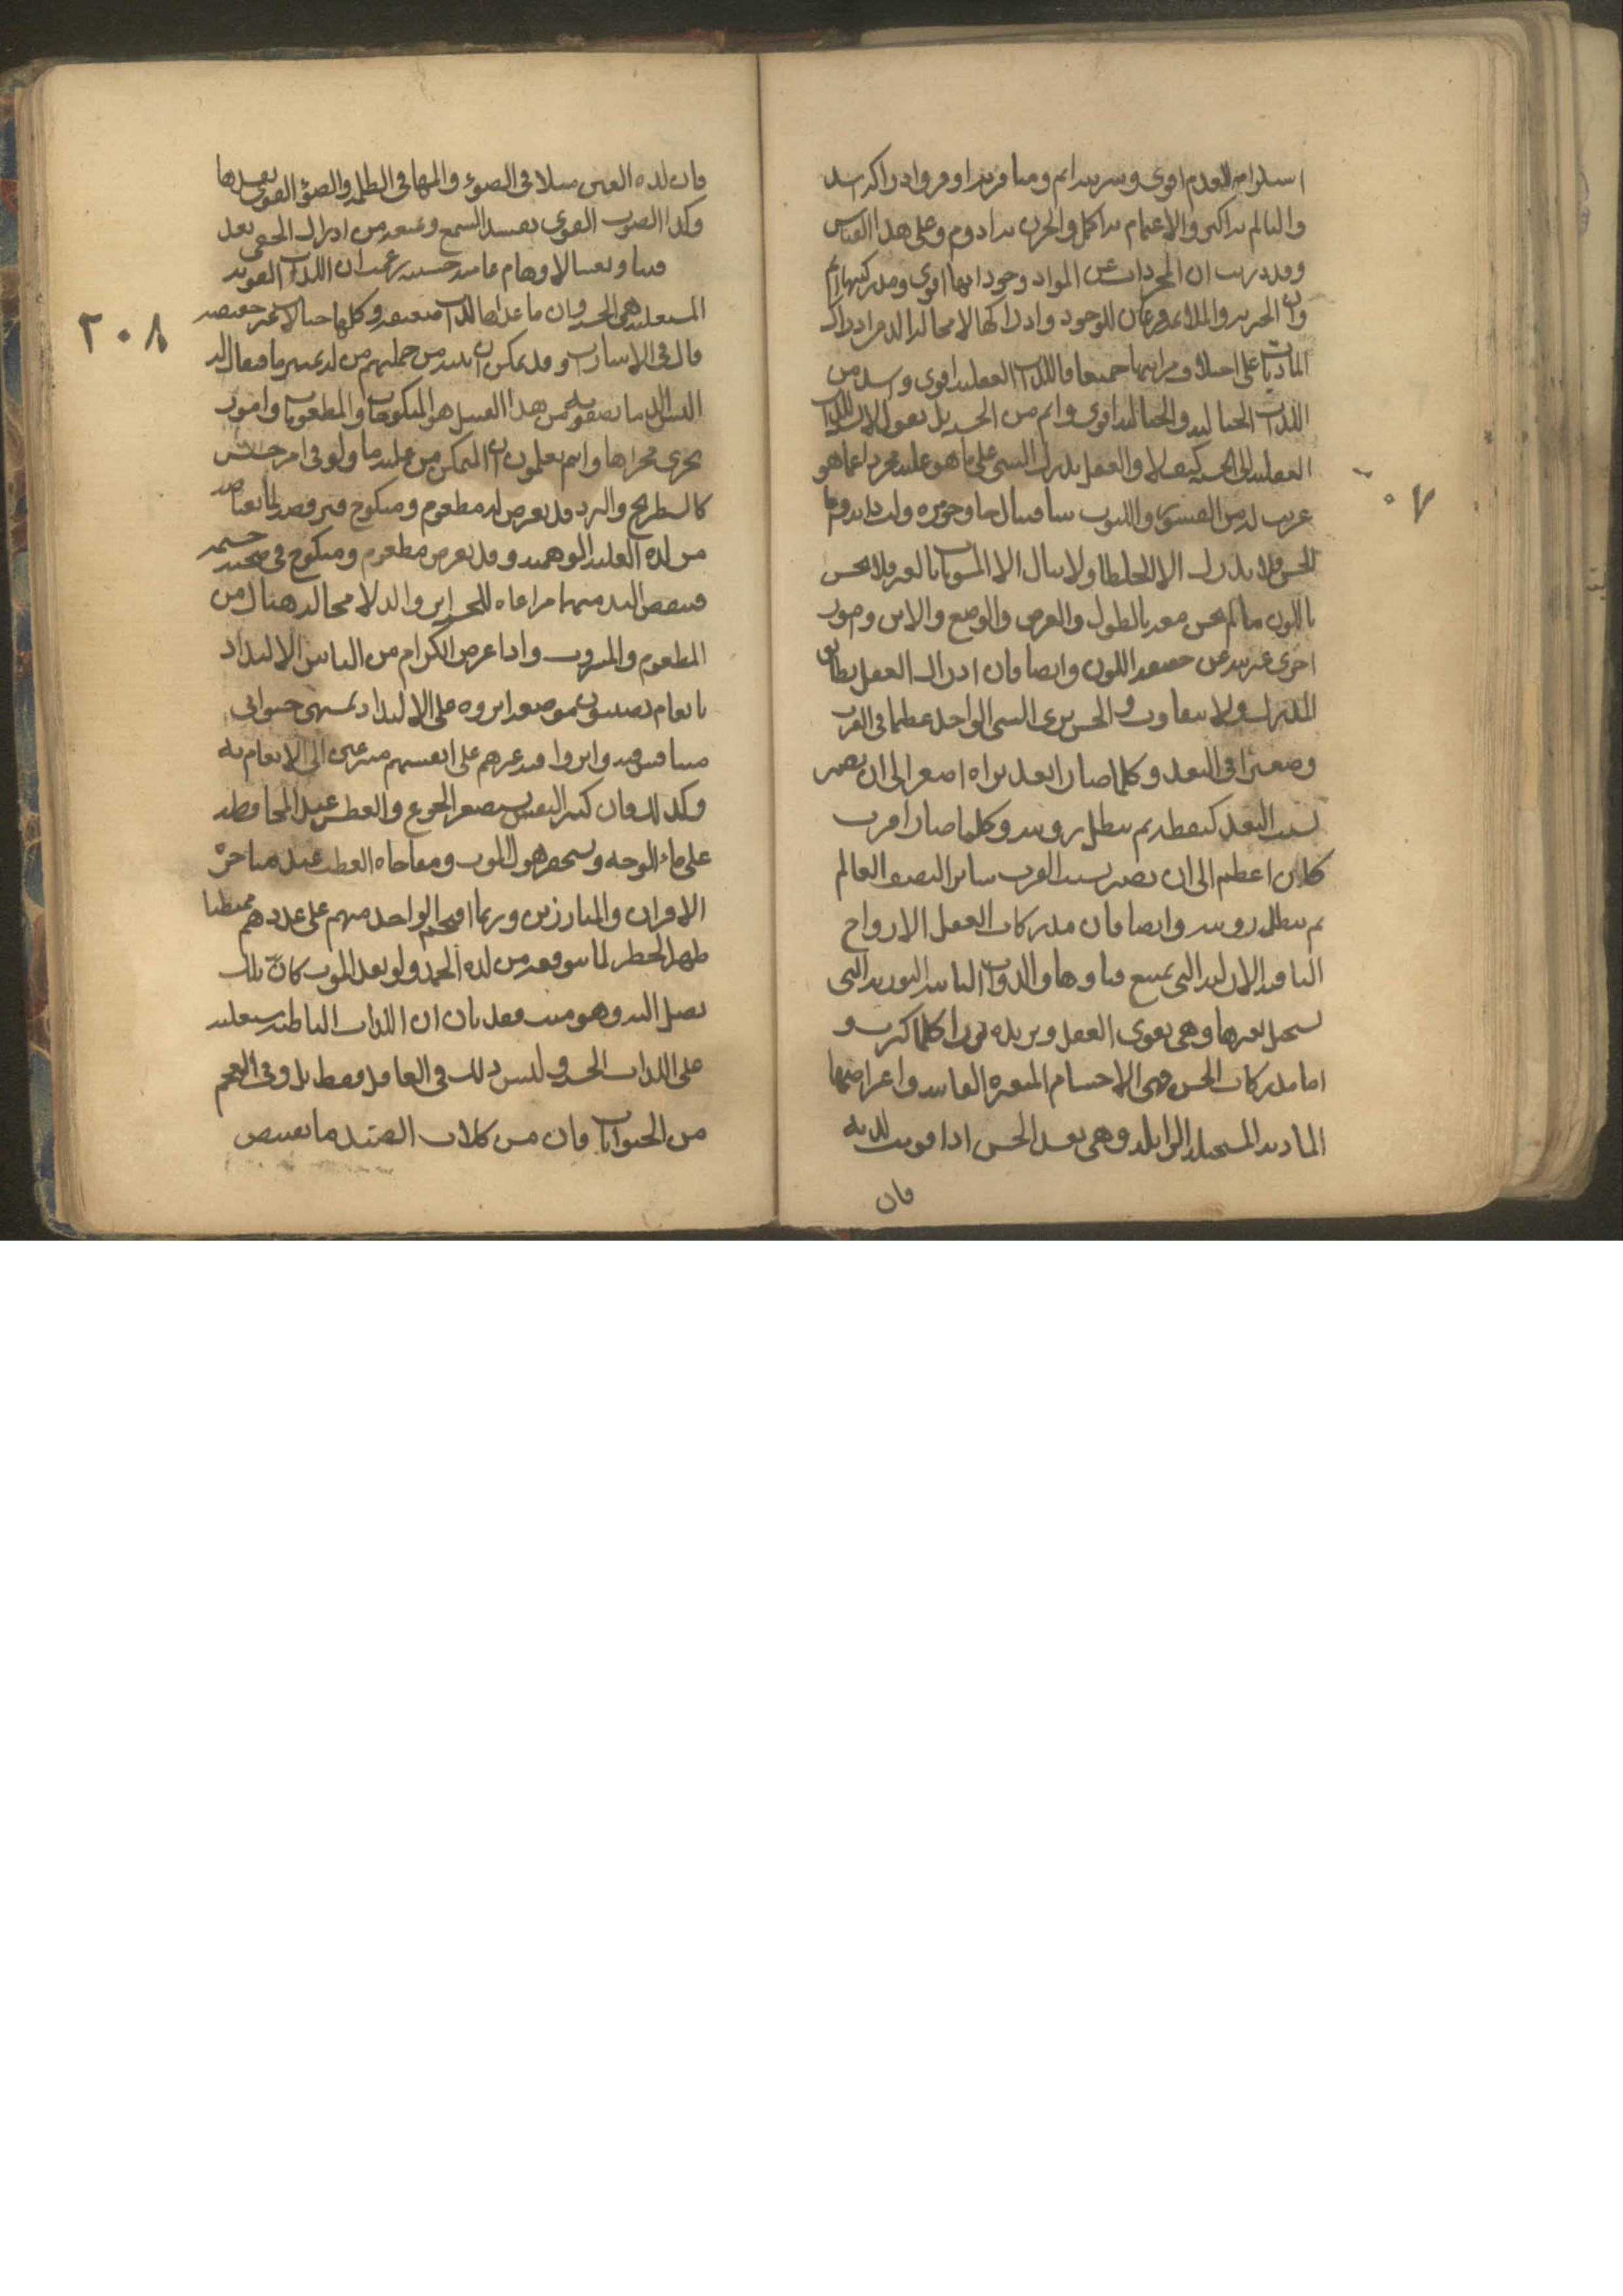 استلزام العدم اقوى وشريته اتم ومنافرته اوفر وادراكه اشد
والتالم به اكثر والاغتمام به اكمل والحزن به ادوم وعلى هذا القياس
وقد دريت ان المجردات عن المواد وجوداتها اقوى ومدركيتها اتم
وان الخيرية والملائمة فرعان للوجود وادراكها لا محالة الذ من ادراك
الماديات على اختلاف مراتبها جميعا فاللذات العقلية اقوى واشد من
اللذات الخيالية والخيالية اقوى واتم من الحسية بل نقول لا نسبة للذات
العقلية الى الحسية كيف لا والعقل يدرك الشى على ما هو عليه مجرد عما هو
غريب له من القشور واللبوب
الحس فلا يدرك الا الخليط ولا ينال الا المشوبات بالغير فلا يحس
باللون ما لم يحس معه بالطول والعرض والوضع والاين وامور
اخرى غريبة عن حقيقة اللون وايضا فان ادراك العقل يطابق
المدرك ولا يتفاوت والحس يرى الشى الواحد عظيما فى القرب
وصغيرا فى البعد وكلما صار ابعد يراه اصغر الى ان يصير
بسبب البعد كنقطة ثم يبطل رويته وكلما صار اقرب
كان اعظم الى ان يصير بسبب القرب ساترا لنصف العالم
ثم يبطل رويته وايضا فان مدركات العقل الارواح
الباقية الازلية التى يمتنع فناوها والذوات الثابتة النورية التى
يستحيل تغيرها وهى تقوى العقل ويزيده نورا كلما كثرت و
اما مدركات الحس فهى الاجسام المتغيرة الفاسدة واعراضها
المادية المستحيلة الزايلة وهى تفسد الحس اذا قويت لديه
فان
٢٠٨
فان لذة العين مثلا فى الضوء والمها فى الظلمة والضوء القوى يفسدها
وكذا الصوت القوى يفسد السمع ويمنعه من ادراك الخفى بعد
قيل وبعض الاوهام عامية خسيسة زعمت ان اللذات القوية
المستعلية هى الحسية وان ما عداها لذات ضعيفة وكلها خيالات غير حقيقية
قال فى الاشارات وقد يمكن ان ينبه من جملتهم من له تمييز ما فيقال له
اليس الذ ما تصفونه من هذا القبيل هو المنكوحات والمطعومات وامور
تجرى مجراها وانتم تعلمون ان المتمكن من غلبة ما ولو فى امر خسيس
كالشطرنج والنرد قد يعرض له مطعوم ومنكوح فيرفضه لما يعتاضه
من لذة الغلبة الوهمية وقد يعرض مطعوم ومنكوح فى صحبة حشمة
فينفض اليد منهما مراعاة للحشمة
المطعوم والمشروب واذا عرض للكرام من الناس الالتذاذ
بانعام يصيبون موضعه اثروه على الالتذاذ بمشتهى حيوانى
متنافس فيه واثروا فيه غيرهم على انفسهم مسرعين الى الانعام به
وكذلك فان كبير النفس يستصغر الجوع والعطش عند المحافظة
على ماء الوجه ويستحقر هول الموت ومفاجاة العطب عند مناجزة
الاقران والمبارزين وربما اقتحم الواحد منهم على عدد دهم ممتطيا
ظهر الخطر لما يتوقعه من لذة الحمد ولو بعد الموت كان تلك
تصل اليه وهو ميت فقد بان ان اللذات الباطنة مستعلية
على اللذات الحسية وليس ذلك فى العاقل فقط بل وفى العجم
من الحيوانات فان من كلاب الصيد ما يقتنص